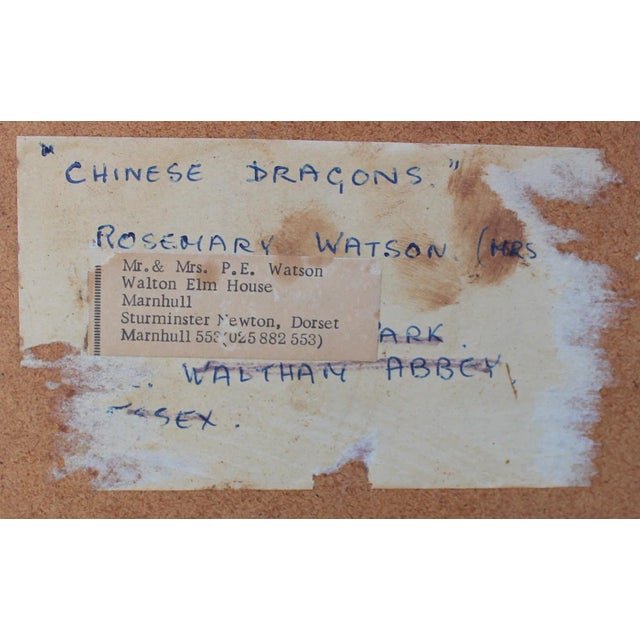 "CHINESE DRAGONS."
ROSEMARY WATSON (MRS
Mr.& Mrs. P.E. Watson
Walton Elm House
Marnhull
Sturminster Newton, Dorset
Marnhull 553(025 882 553)
ARK.
WALTHAM ABBEY,
ESSEX.